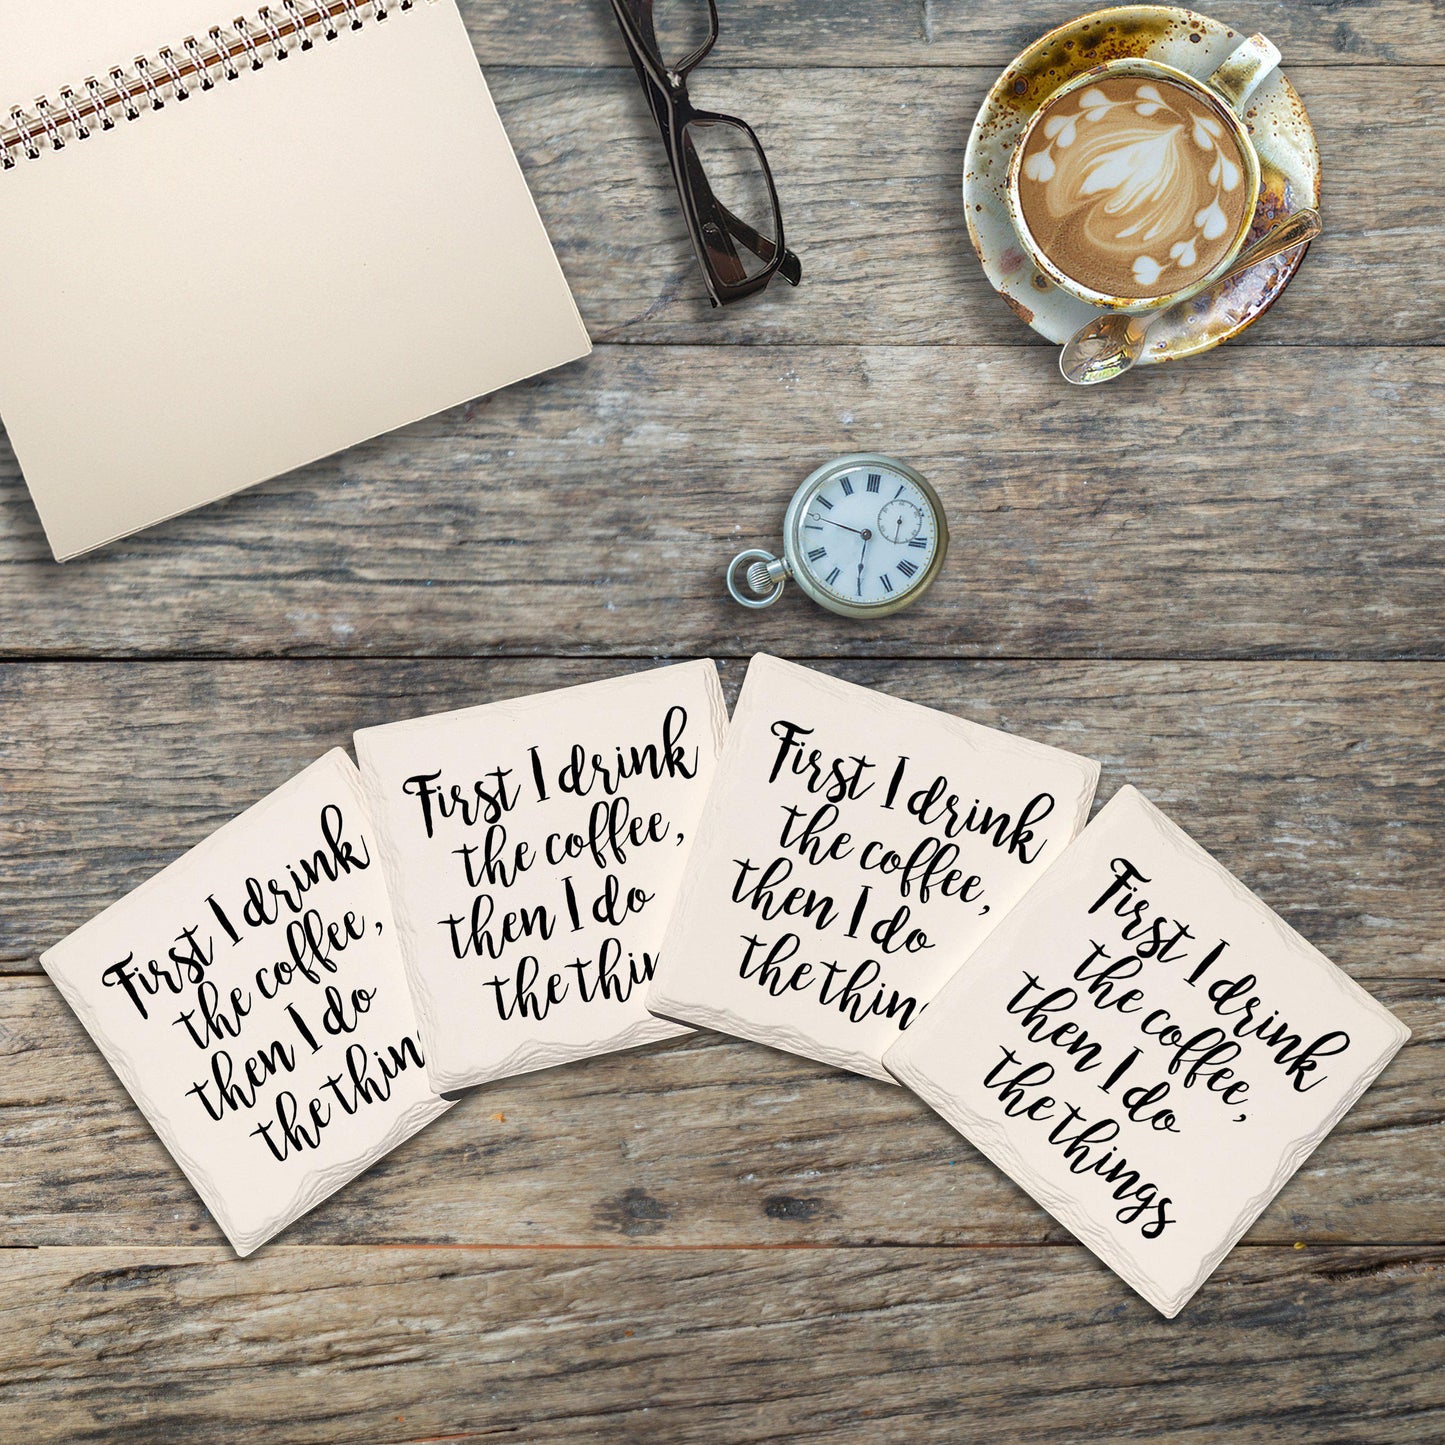 First I drink
the coffee,
then I do
the thin
First I drink
the coffee,
then I do
the thin
First I drink
the coffee,
then I do
the thin
First I drink
the coffee,
then I do
the things